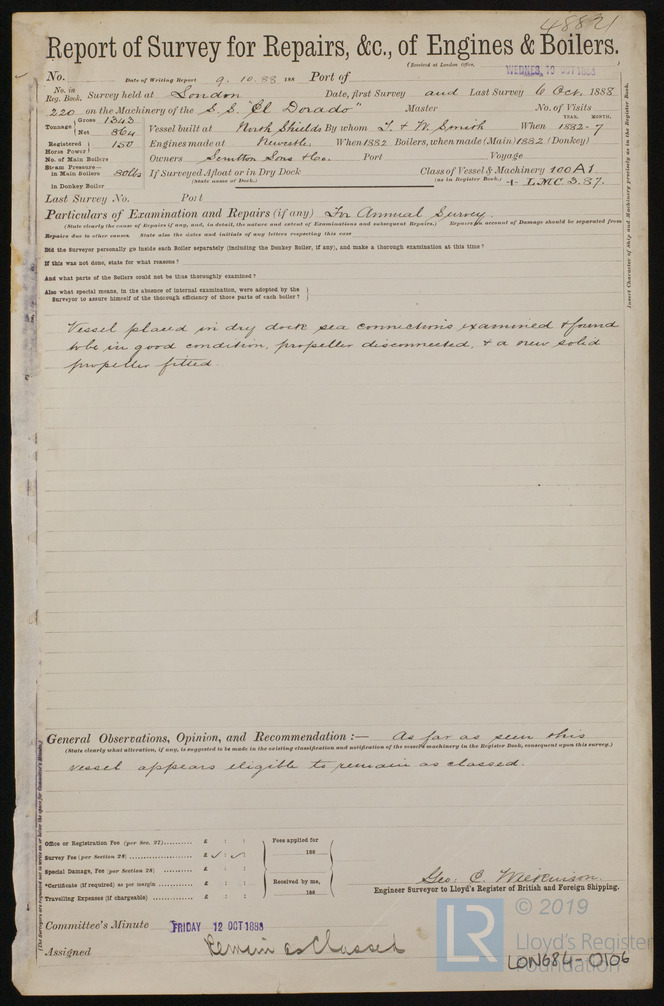 48821
Report of Survey for Repairs, &c., of Engines & Boilers.
(Received at London Office,
WEDNES. 10 OCT 1888
No. Date of Writing Report 9. 10. 88 188 Port of
No. in Reg. Book. Survey held at London Date, first Survey and Last Survey 6 Oct. 1888
220 on the Machinery of the S.S. "El Dorado" Master No. of Visits
YEAR. MONTH.
Tonnage { Gross 1343 Net 864 Vessel built at North Shields By whom T. & W. Smith When 1882-7
Registered Horse Power } 150 Engines made at Newcastle When 1882 Boilers, when made (Main) 1882 (Donkey)
No. of Main Boilers Owners Scrutton Sons & Co. Port Voyage
Steam Pressure— in Main Boilers 80lbs If Surveyed Afloat or in Dry Dock Class of Vessel & Machinery 100A1
(State name of Dock.) (as in Register Book.) + LMC. 3.87.
in Donkey Boiler
Last Survey No. Port
Particulars of Examination and Repairs (if any) For Annual Survey.
(State clearly the cause of Repairs if any, and, in detail, the nature and extent of Examinations and subsequent Repairs.) Repairs on account of Damage should be separated from
Repairs due to other causes. State also the dates and initials of any letters respecting this case
Did the Surveyor personally go inside each Boiler separately (including the Donkey Boiler, if any), and make a thorough examination at this time?
If this was not done, state for what reasons?
And what parts of the Boilers could not be thus thoroughly examined?
Also what special means, in the absence of internal examination, were adopted by the
Surveyor to assure himself of the thorough efficiency of those parts of each boiler?
Vessel placed in dry dock sea connections examined & found
to be in good condition, propeller disconnected, & a new solid
propeller fitted.
Insert Character of Ship and Machinery precisely as in the Register Book.
General Observations, Opinion, and Recommendation :— As far as seen this
(State clearly what alteration, if any, is suggested to be made in the existing classification and notification of the vessel's machinery in the Register Book, consequent upon this survey.)
vessel appears eligible to remain as classed.
Office or Registration Fee (per Sec. 27).......... £ : : Fees applied for
Survey Fee (per Section 28) .................. £ : : 188
Special Damage, Fee (per Section 28) £ : :
*Certificate (if required) as per margin .......... £ : : Received by me,
Travelling Expenses (if chargeable) .............. £ : : 188
Geo: C. Wilkinson.
Engineer Surveyor to Lloyd's Register of British and Foreign Shipping.
Committee's Minute FRIDAY 12 OCT 1888
Assigned Remain as Classed
LR © 2019
Lloyd's Register
Foundation
LON684-0106